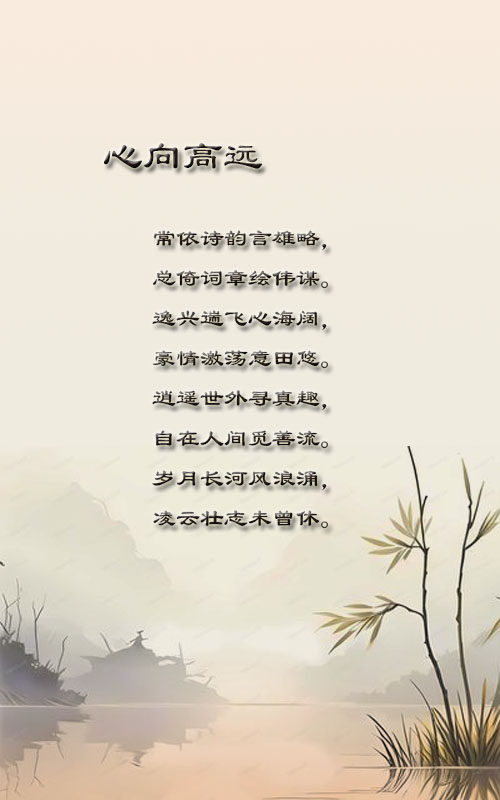 心向高远
常依诗韵言雄略，
总倚词章绘伟谋。
逸兴遄飞心海阔，
豪情激荡意田悠。
逍遥世外寻真趣，
自在人间觅善流。
岁月长河风浪涌，
凌云壮志未曾休。